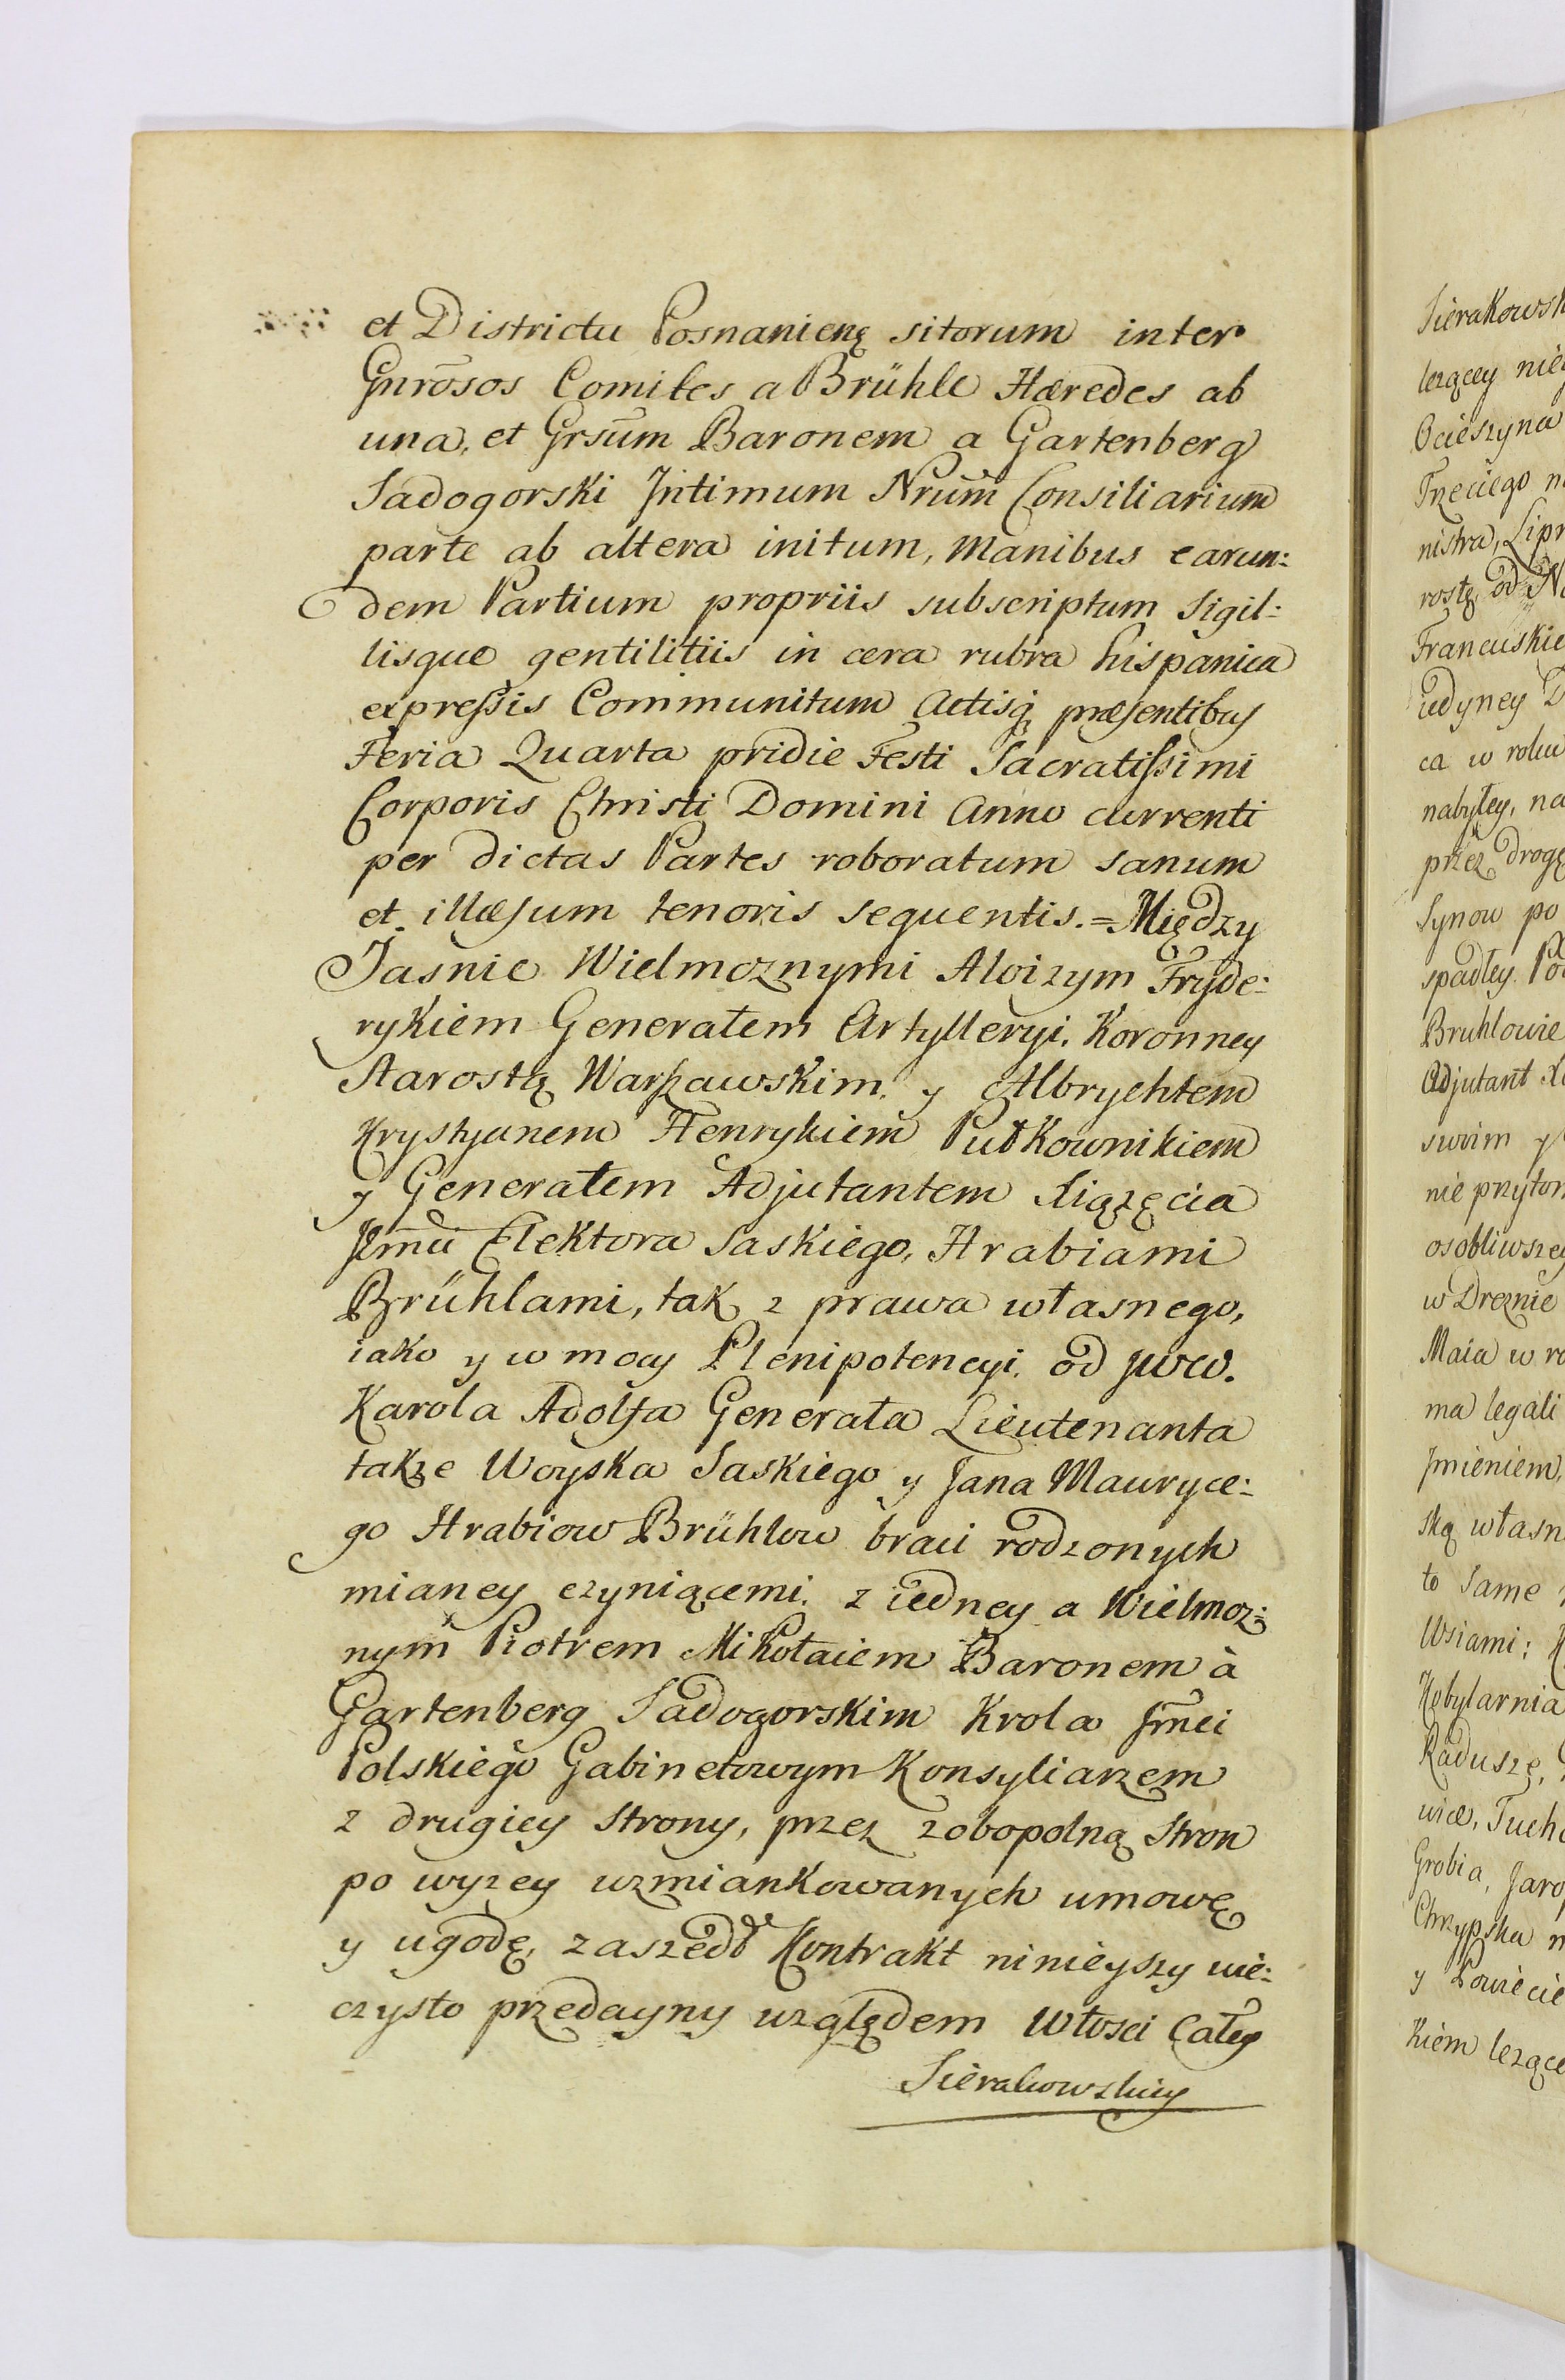 et Districtu Posnanienę sitorum inter
Gnrōsos Comites a Brühle Hæredes ab
una, et Grsūm Baronem a Gartenberg
Sadogorski Jntimum Nrūm Consiliarium
parte ab altera initum, Manibus earun:
dem Partium propriis subscriptum Sigil:
lisque gentilitiis in cera rubra hispanica
expreſsis Communitum Actisq præsentibus
Feria Quarta pridie Festi Sacratiſsimi
Corporis Christi Domini Anno currenti
per dictas Partes roboratum sanum
et illæsum tenoris sequentis.=Między
Jasnie Wielmoznymi Aloizym Fryde:
rykiem Generałem Artylleryi Koronney
Starostą Warszawskim y Albrychtem
Krystyanem Henrykiem Pułkownikiem
y Generałem Adjutantem Xiązęcia
Jmći Elektora Saskiego, Hrabiami
Brühlami, tak z prawa własnego,
iako y w mocy Plenipotencyi od JWW.
Karola Adolfa Generała Lieutenanta
także Woyska Saskiego y Jana Mauryce:
go Hrabiow Brühlow braci rodzonych
mianey czyniącemi z iedney a Wielmoz:
nym Piotrem Mikołaiem Baronem à
Gartenberg Sadogorskim Krola Jmći
Polskiego Gabinetowym Konsyliarzem
z drugiey Strony, przez zobopolną Stron
po wyzey wzmiankowanych umowę
y ugodę, zaszedł Kontrakt ninieyszy wie:
czysto przedayny względem Włosci Całey
Sierakowskiey
Sierakowsk
lezącey
Ocieszyna
Trzeciego
nistra, Lipn
rostę, od
Francuskie
iedyney
ca w roku
nabyłey, na
przez drogę
Synow po
spadłey.
Bruhlowie
Adjutant
swoim y
nie przytom
osobliwszey
w Dreznie
Maia w ro
ma legali
Jmieniem,
ską własn
to Same
Wsiami:
Kobylarnia
Radusze,
wice, Tucho
Grobia, Jaro
Chrzypska
y Powiecie
kiem lezące